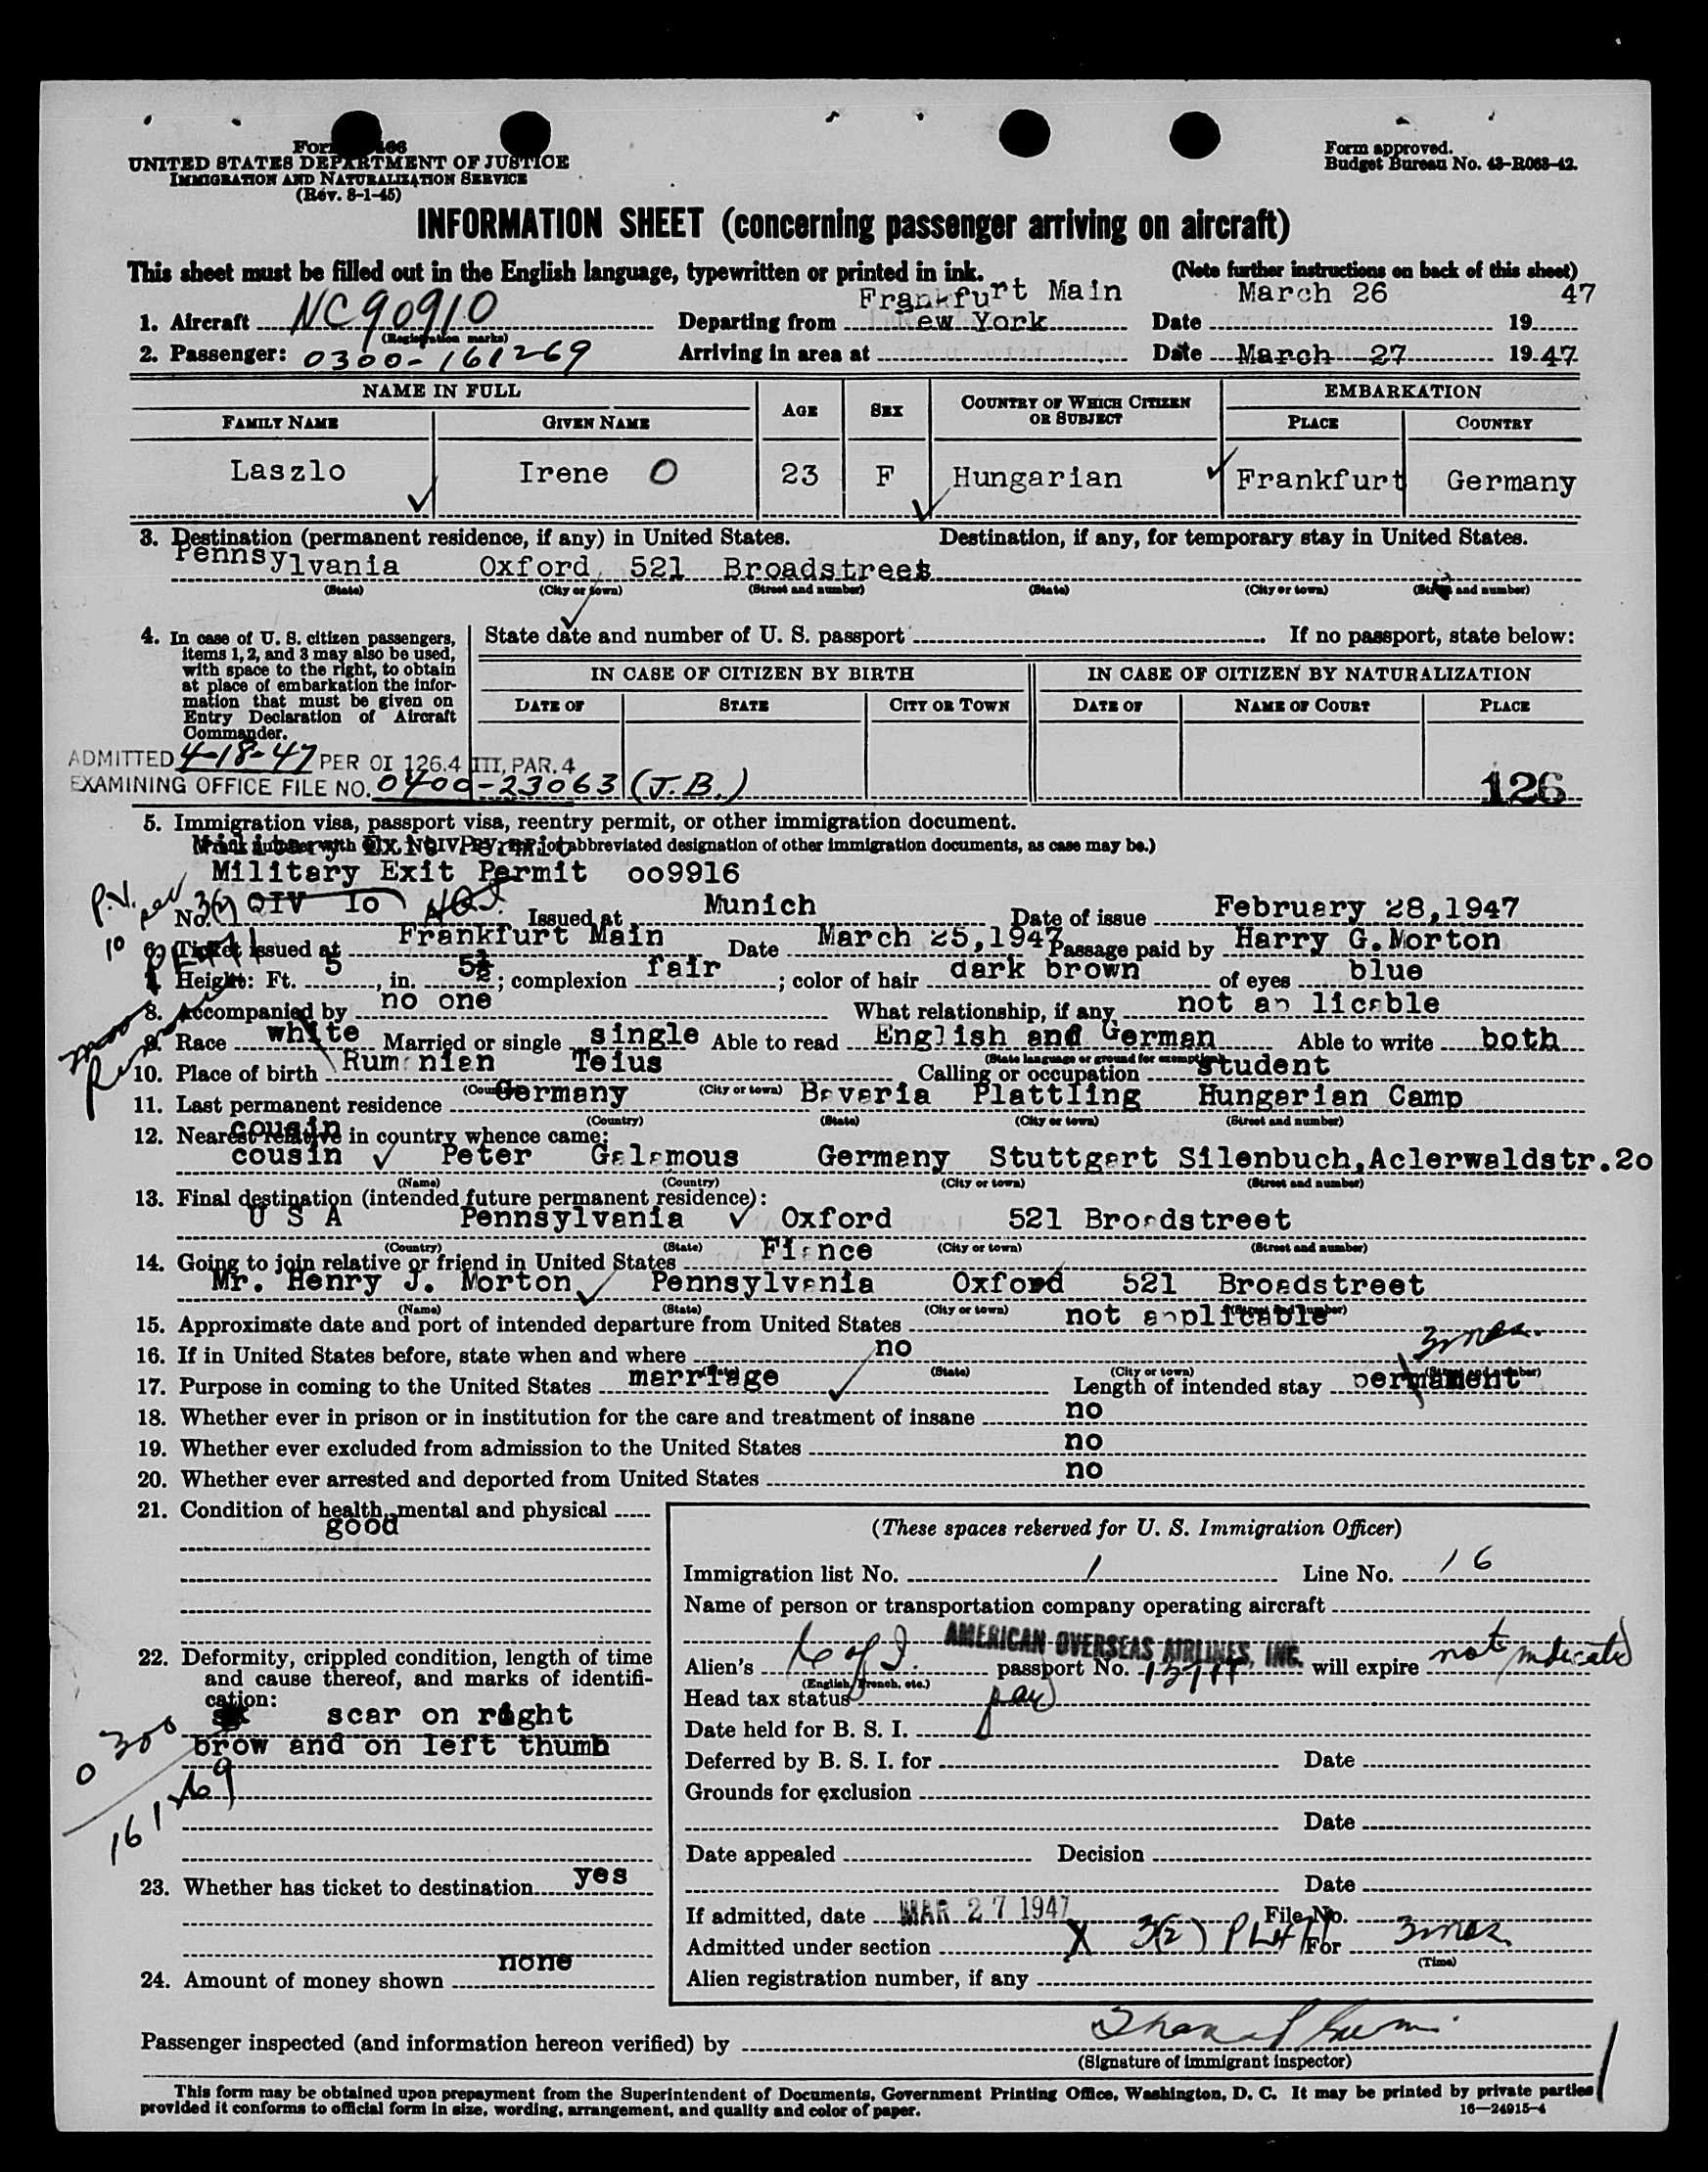 Form
UNITED STATES DEPARTMENT OF JUSTICE
IMMIGRATION AND NATURALIZATION SERVICE
(Rev. 8-1-45)
Form approved.
Budget Bureau No. 43-R063-42.
INFORMATION SHEET (concerning passenger arriving on aircraft)
This sheet must be filled out in the English language, typewritten or printed in ink. (Note further instructions on back of this sheet)
Frankfurt Main March 26 47
1. Aircraft NC90910 Departing from New York Date 19
(Registration marks)
2. Passenger: 0300-161269 Arriving in area at Date March 27 19 47
NAME IN FULL AGE SEX COUNTRY OF WHICH CITIZEN OR SUBJECT EMBARKATION
FAMILY NAME GIVEN NAME PLACE COUNTRY
Laszlo Irene O 23 F Hungarian Frankfurt Germany
3. Destination (permanent residence, if any) in United States. Destination, if any, for temporary stay in United States.
Pennsylvania Oxford 521 Broadstreet
(State) (City or town) (Street and number) (State) (City or town) (Street and number)
4. In case of U. S. citizen passengers, items 1, 2, and 3 may also be used, with space to the right, to obtain at place of embarkation the information that must be given on Entry Declaration of Aircraft Commander.
State date and number of U. S. passport If no passport, state below:
IN CASE OF CITIZEN BY BIRTH IN CASE OF CITIZEN BY NATURALIZATION
DATE OF STATE CITY OR TOWN DATE OF NAME OF COURT PLACE
ADMITTED 4-18-47 PER OI 126.4 III, PAR. 4
EXAMINING OFFICE FILE NO. 0400-23063 (J.B.) 126
5. Immigration visa, passport visa, reentry permit, or other immigration document.
abbreviated designation of other immigration documents, as case may be.)
Military Exit Permit oo9916
No. 3(2) QIV Io Issued at Munich Date of issue February 28,1947
6. Ticket issued at Frankfurt Main Date March 25,1947 Passage paid by Harry G.Morton
Height: Ft. 5, in. 5½; complexion fair; color of hair dark brown of eyes blue
8. Accompanied by no one What relationship, if any not applicable
9. Race white Married or single single Able to read English and German Able to write both
(State language or ground for exemption)
10. Place of birth Rumanien Teius Calling or occupation student
(Country) (City or town)
11. Last permanent residence Germany Bavaria Plattling Hungarian Camp
(Country) (State) (City or town) (Street and number)
12. Nearest relative in country whence came:
cousin Peter Galamous Germany Stuttgart Silenbuch,Aclerwaldstr.2o
(Name) (Country) (City or town) (Street and number)
13. Final destination (intended future permanent residence):
U S A Pennsylvania Oxford 521 Broadstreet
(Country) (State) (City or town) (Street and number)
14. Going to join relative or friend in United States Fiance
Mr. Henry J. Morton Pennsylvania Oxford 521 Broadstreet
(Name) (State) (City or town) (Street and number)
15. Approximate date and port of intended departure from United States not applicable
16. If in United States before, state when and where no
(Date) (State) (City or town) (Street and number)
17. Purpose in coming to the United States marriage Length of intended stay permanent 3 mos.
18. Whether ever in prison or in institution for the care and treatment of insane no
19. Whether ever excluded from admission to the United States no
20. Whether ever arrested and deported from United States no
21. Condition of health, mental and physical
good
22. Deformity, crippled condition, length of time and cause thereof, and marks of identification:
scar on right
brow and on left thumb
0300
161269
23. Whether has ticket to destination yes
24. Amount of money shown none
(These spaces reserved for U. S. Immigration Officer)
Immigration list No. 1 Line No. 16
Name of person or transportation company operating aircraft
AMERICAN OVERSEAS AIRLINES, INC.
Alien's C of I. passport No. will expire not indicated
(English, French, etc.)
Head tax status
Date held for B. S. I.
Deferred by B. S. I. for Date
Grounds for exclusion
Date
Date appealed Decision
Date
If admitted, date MAR 27 1947 File No.
Admitted under section X 3(2) PL471 For 3 mos
(Time)
Alien registration number, if any
Passenger inspected (and information hereon verified) by
(Signature of immigrant inspector)
This form may be obtained upon prepayment from the Superintendent of Documents, Government Printing Office, Washington, D. C. It may be printed by private parties
provided it conforms to official form in size, wording, arrangement, and quality and color of paper. 16—24915-4